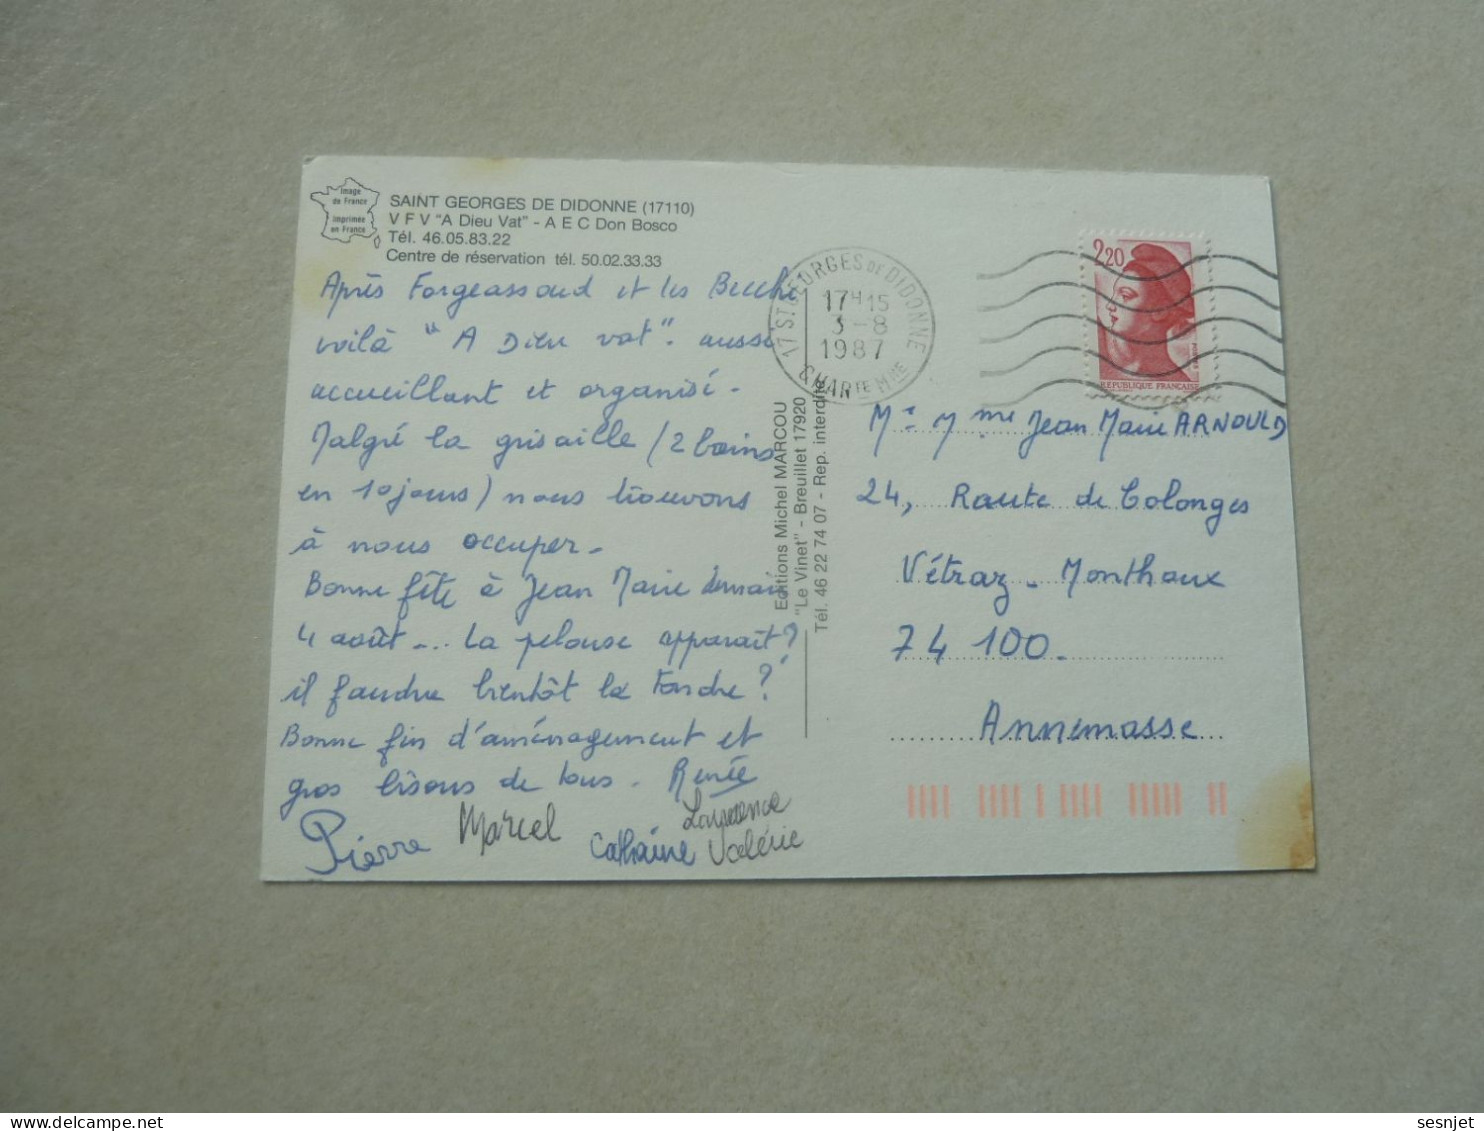 Image
de France
imprimée
en France
SAINT GEORGES DE DIDONNE (17110)
V F V "A Dieu Vat" - A E C Don Bosco
Tél. 46.05.83.22
Centre de réservation tél. 50.02.33.33
Après Forgeassoud et les
voilà "A Dieu vat". aussi
accueillant et organisé.
Malgré la grisaille (2 bains
en 10 jours) nous trouvons
à nous occuper.
Bonne fête à Jean Marie demain
4 août... La pelouse apparaît?
il faudra bientôt la tondre?
Bonne fin d'aménagement et
gros bisous de tous. Renée
Pierre Marcel Laurence
Catherine Valérie
Editions Michel MARCOU
"Le Vinet" - Breuillet 17920
Tél. 46 22 74 07 - Rep. interdite
17 ST GEORGES DE DIDONNE
17H15
3-8
1987
CHARTE MME
2,20
POSTES
REPUBLIQUE FRANÇAISE
Mr Mme Jean Marie ARNOULD
24, Route de Colonges
Vétraz-Monthoux
74 100.
Annemasse
sesnjet
delcampe.net